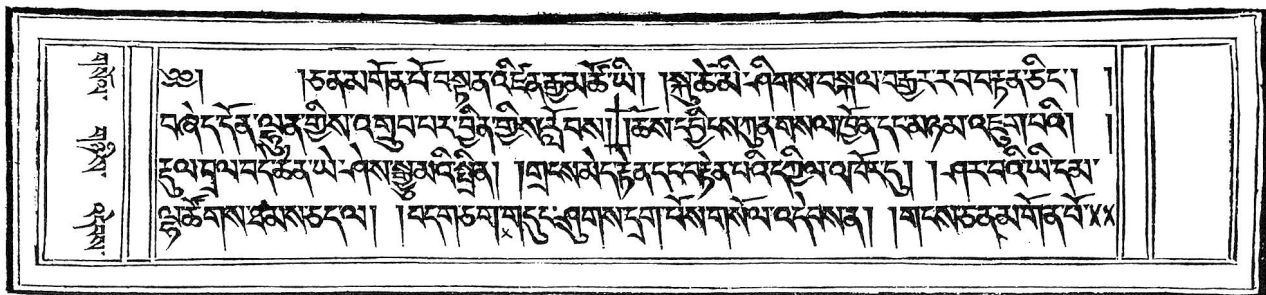 གསོལ་ གཉིས་ འདེབས་
༄༅། །ཅན་མགོན་པོ་བསྟན་འཛིན་རྒྱ་མཚོ་ཡི། །སྐུ་ཚེ་མི་ཤིགས་བསྐལ་བརྒྱར་རབ་བརྟན་ཅིང་། །
བཞེད་དོན་ལྷུན་གྱིས་འགྲུབ་པར་བྱིན་གྱིས་རློབས། །ཆོས་དབྱིངས་ཀུན་གསལ་ཁྱོན་དང་མཉམ་འཇུག་པའི། །
རྡུལ་བྲལ་བདེ་ཆེན་ཡེ་ཤེས་སྒྱུ་མའི་སྤྲིན། །གྲངས་མེད་རྟེན་དང་བརྟེན་པའི་དཀྱིལ་འཁོར་དུ། །ཤར་བའི་ཡི་དམ་
ལྷ་ཚོགས་ཐམས་ཅད་ལ། །བདག་ཅག་གདུང་ཤུགས་དྲག་པོས་གསོལ་འདེབས་ན། །གངས་ཅན་མགོན་པོ་××